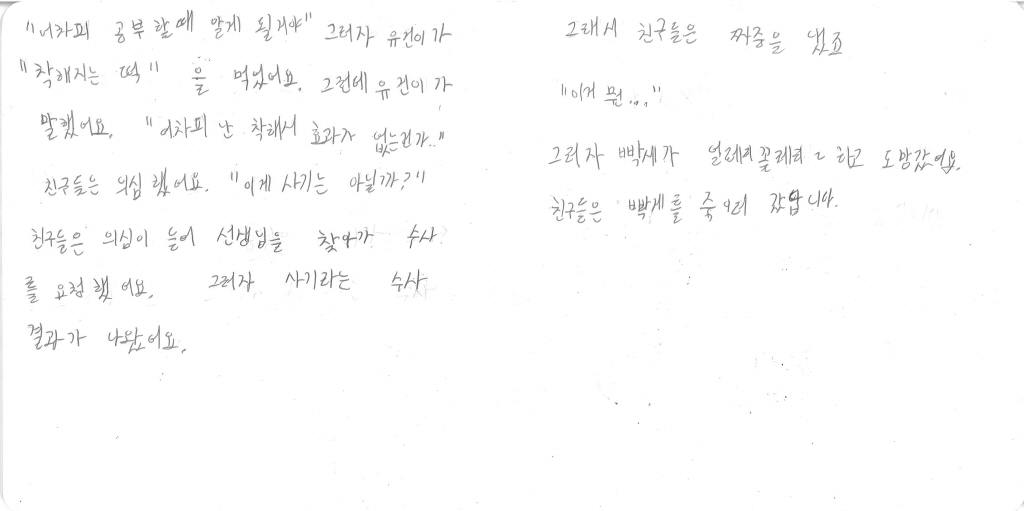 "어차피 공부할때 알게 될거야" 그러자 유건이가
"착해지는 떡" 을 먹었어요. 그런데 유건이가
말했어요. "어차피 난 착해서 효과가 없는건가.."
친구들은 의심했어요. "이게 사기는 아닐까?"
친구들은 의심이 들어 선생님을 찾아가 수사
를 요청했어요. 그러자 사기라는 수사
결과가 나왔어요.
그래서 친구들은 짜증을 냈죠
"이거 뭔...."
그러자 빡세가 얼레리꼴레리~ 하고 도망갔어요.
친구들은 빡세를 죽이러 갔답니다.